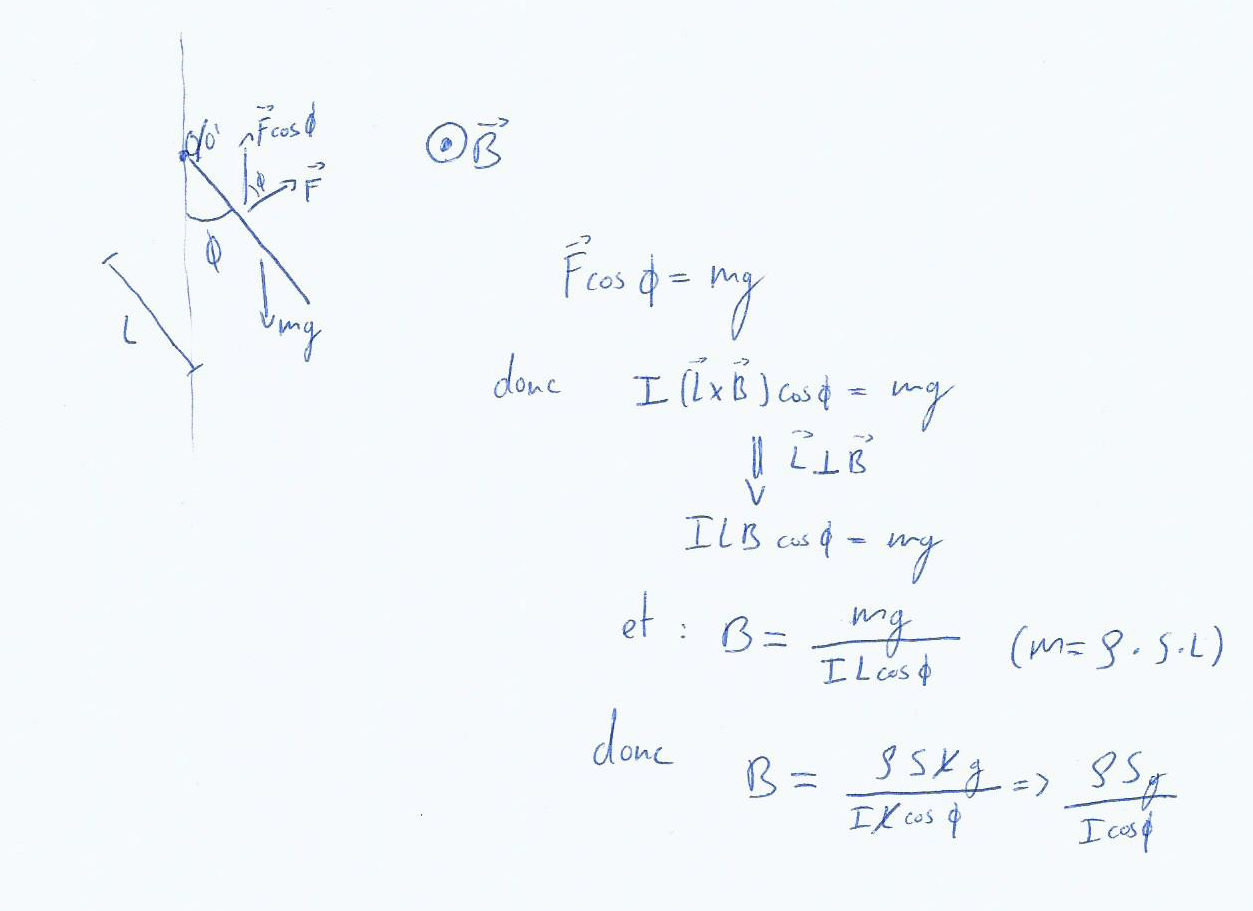 O/O'
F⃗cosϕ
ϕ
F⃗
ϕ
mg
L
⊙B⃗
F⃗cos ϕ = mg
donc I (L⃗xB⃗)cosϕ = mg
⇓ L⃗⊥B⃗
ILB cosϕ = mg
et : B = mg / ILcosϕ (m= ρ . S . L)
donc B = ρSLg / ILcosϕ => ρSg / Icosϕ